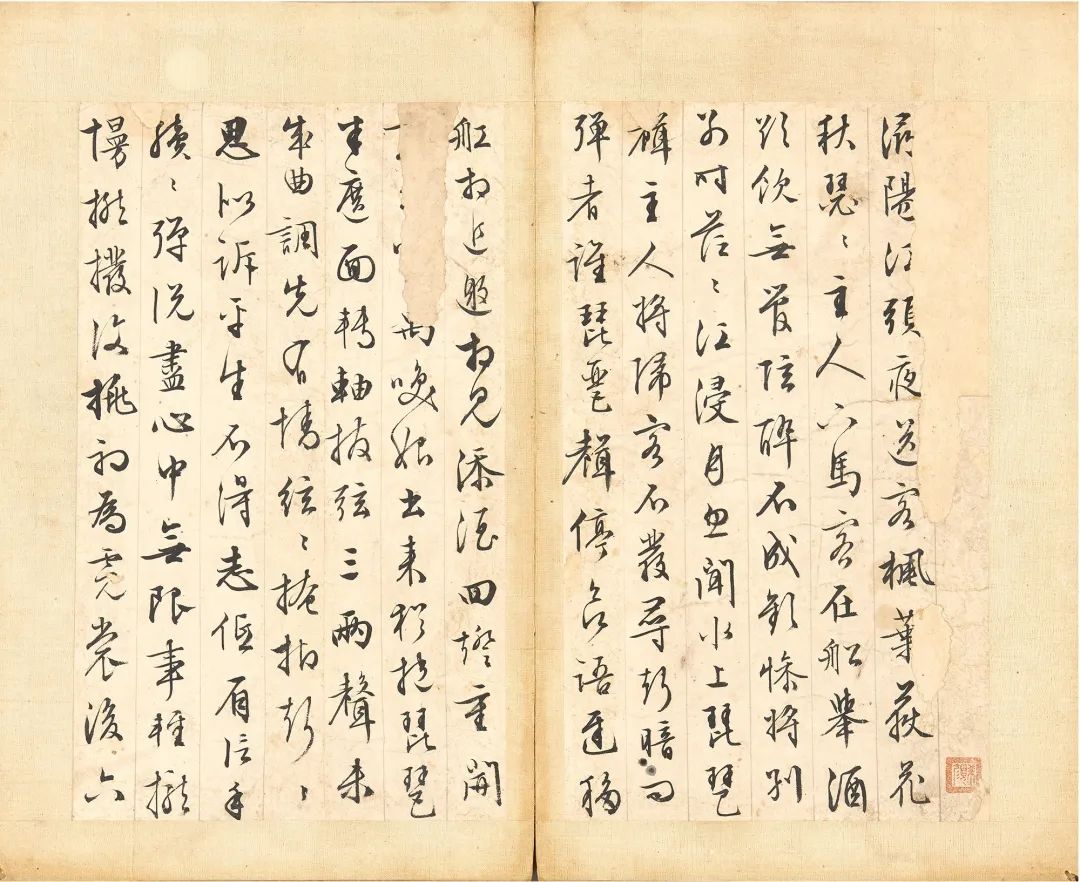 潯陽江頭夜送客楓葉荻花
秋瑟〻主人下馬客在船舉酒
欲飲無管弦醉不成歡慘將別
別時茫〻江浸月忽聞水上琵琶
聲主人將歸客不發尋聲暗問
彈者誰琵琶聲停欲語遲移
船相近邀相見添酒回燈重開
喚始出來猶抱琵琶
半遮面轉軸撥弦三兩聲未
成曲調先有情弦〻掩抑聲〻
思似訴平生不得志低眉信手
續〻彈說盡心中無限事輕攏
慢撚撥復挑初為霓裳後六